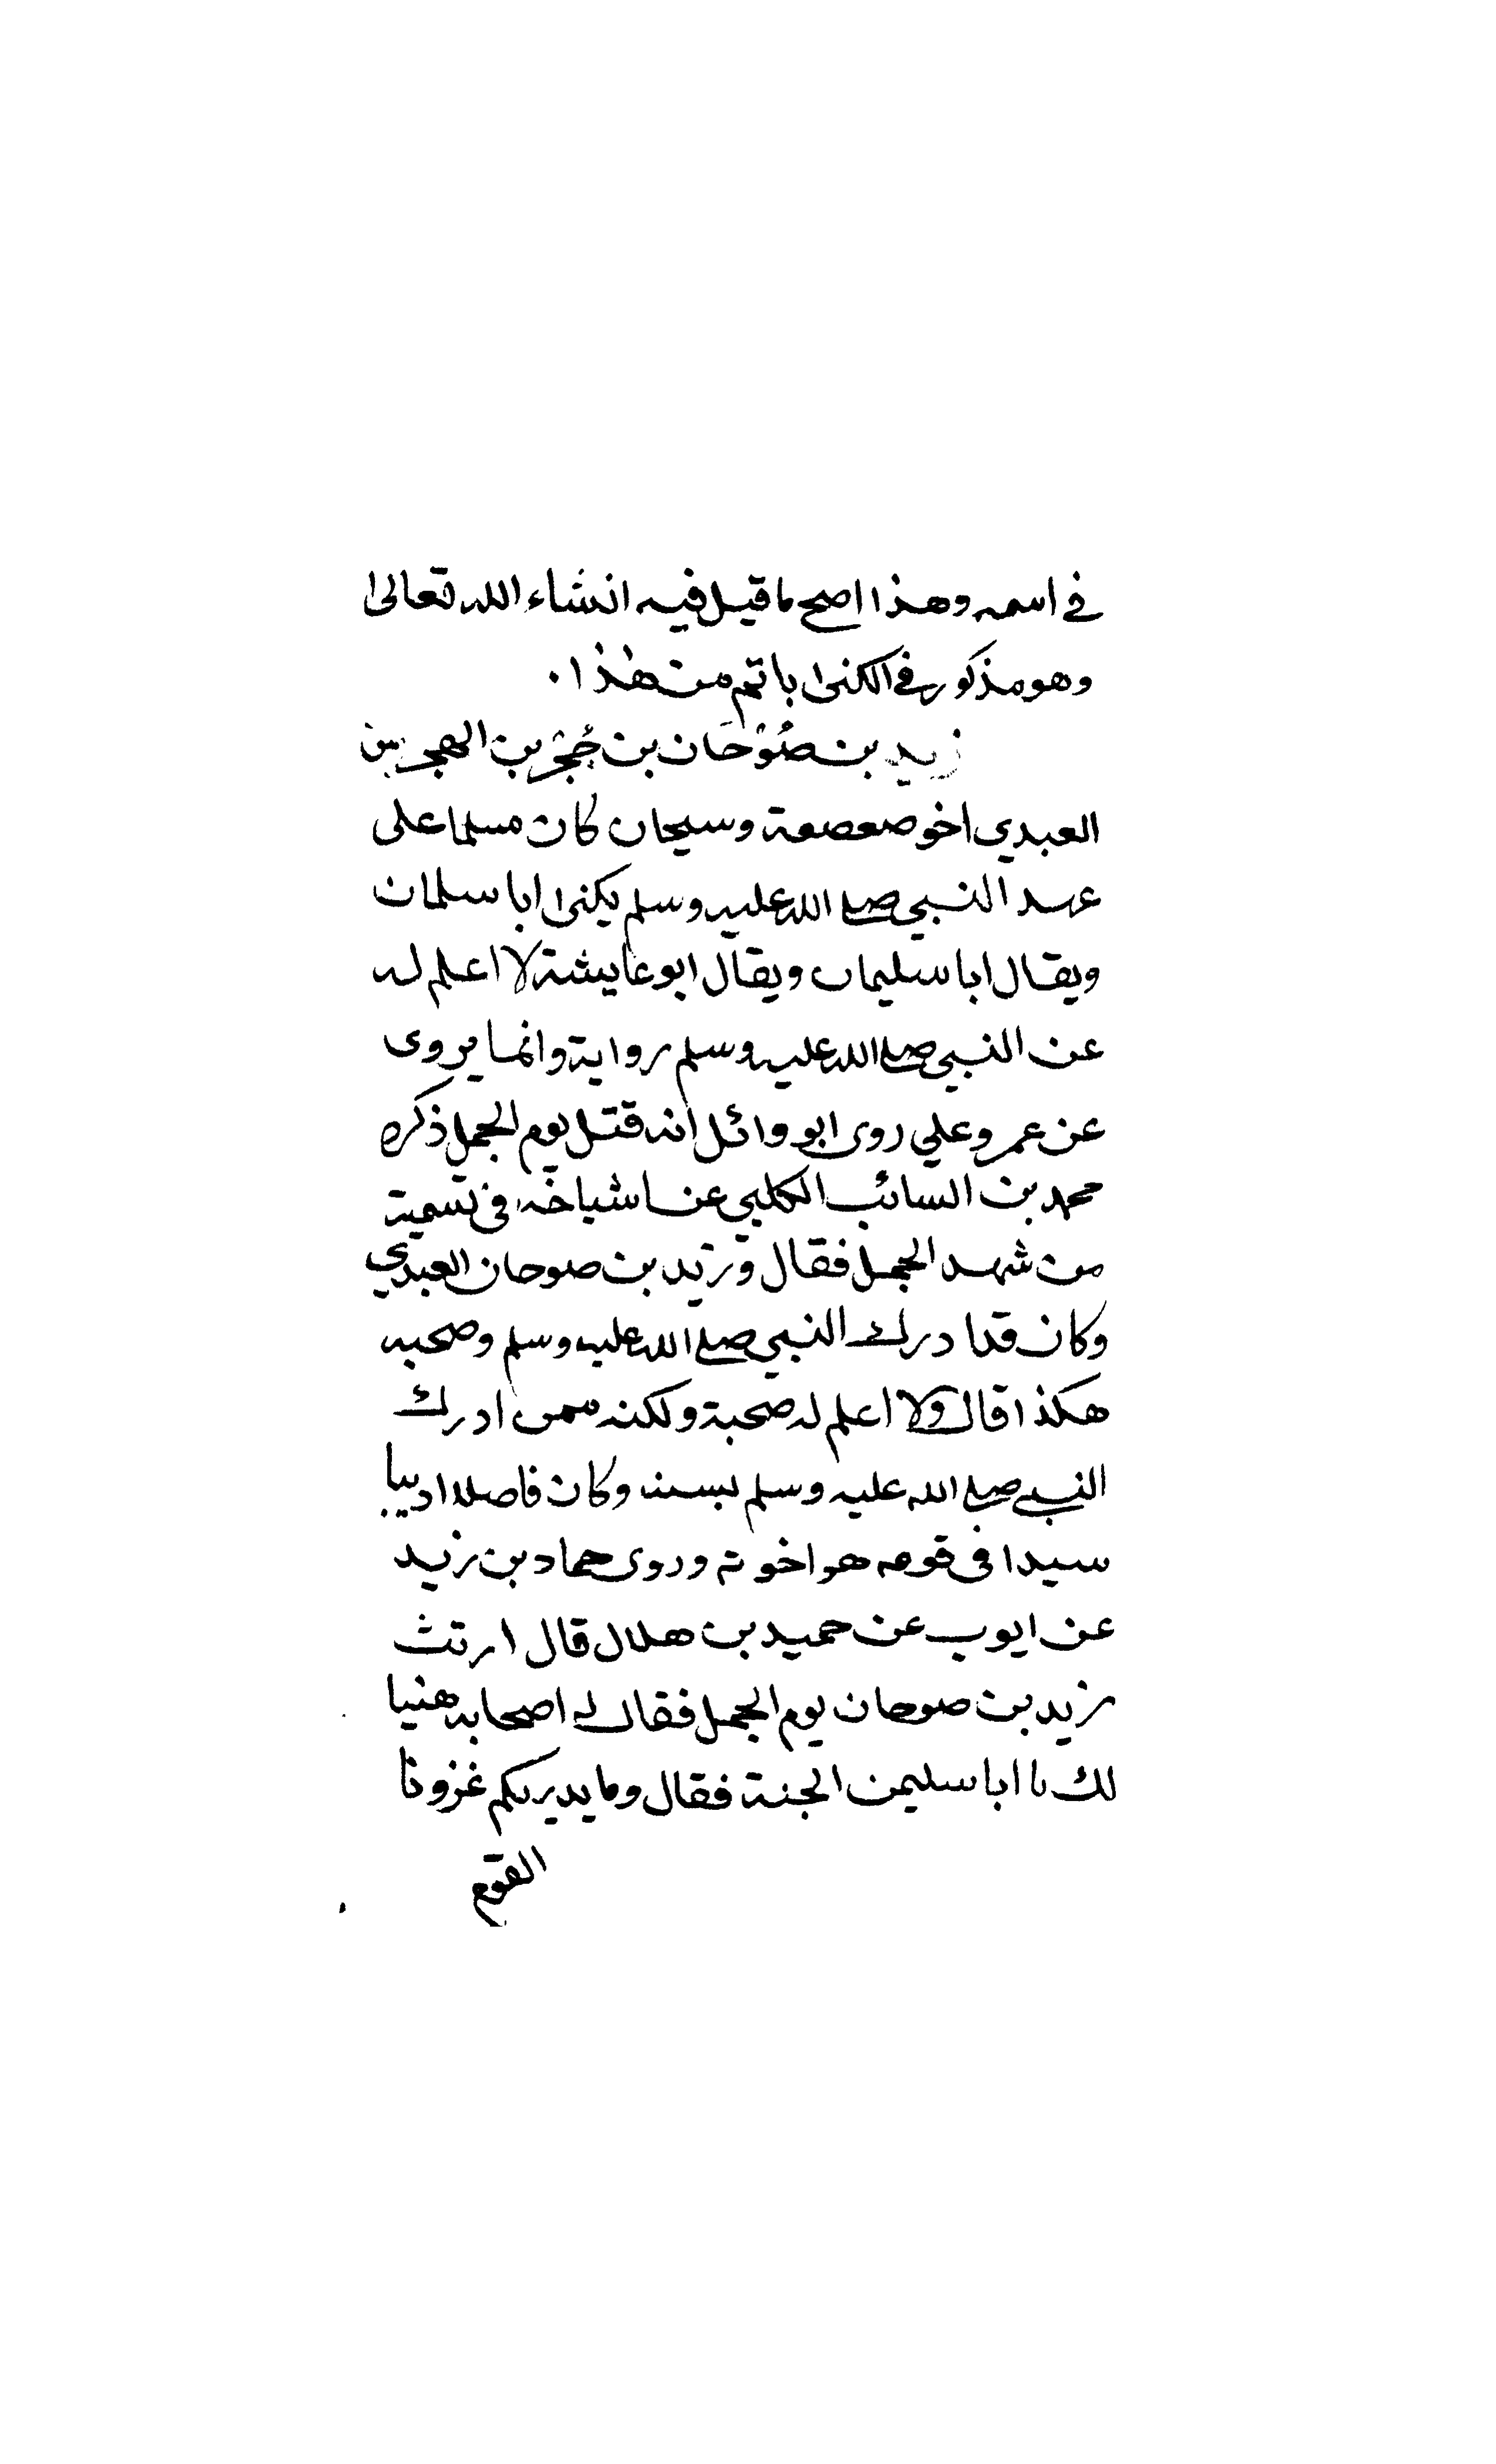 في اسمه وهذا اصح ما قيل فيه انشاء الله تعالى
وهو مذكور في الكنى باتم من هذا.
زيد بن صُوْحَان بن حُجْر بن الهجر بن
العبدي اخو صعصعة وسيحان كان مسلما على
عهد النبي صلى الله عليه وسلم يكنى ابا سلمان
ويقال ابا سليمان ويقال ابو عايشة لا اعلم له
عن النبي صلى الله عليه وسلم رواية وانما يروى
عن عمر وعلي روى ابو وائل انه قتل يوم الجمل ذكره
محمد بن السائب الكلبي عن اشياخه في تسمية
من شهد الجمل فقال وزيد بن صوحان العبدي
وكان قد ادرك النبي صلى الله عليه وسلم وصحبه
هكذا قال ولا اعلم له صحبة ولكنه ممن ادرك
النبي صلى الله عليه وسلم بسنه وكان فاضلا اديبا
سيدا في قومه هو اخوته وروى حماد بن زيد
عن ايوب عن حميد بن هلال قال ارتث
زيد بن صوحان يوم الجمل فقال له اصحابه هنيا
لك يا ابا سليمن الجنة فقال وما يدريكم غزونا
القوم